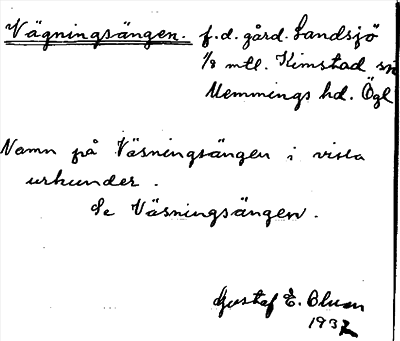 Vägningsängen. f.d. gård. Landsjö
1/8 mtl. Kimstad sn
Memmings hd. Ögl
Namn på Väsningsängen i vissa
urkunder.
Se Väsningsängen.
Gustaf E. Bluem
1932